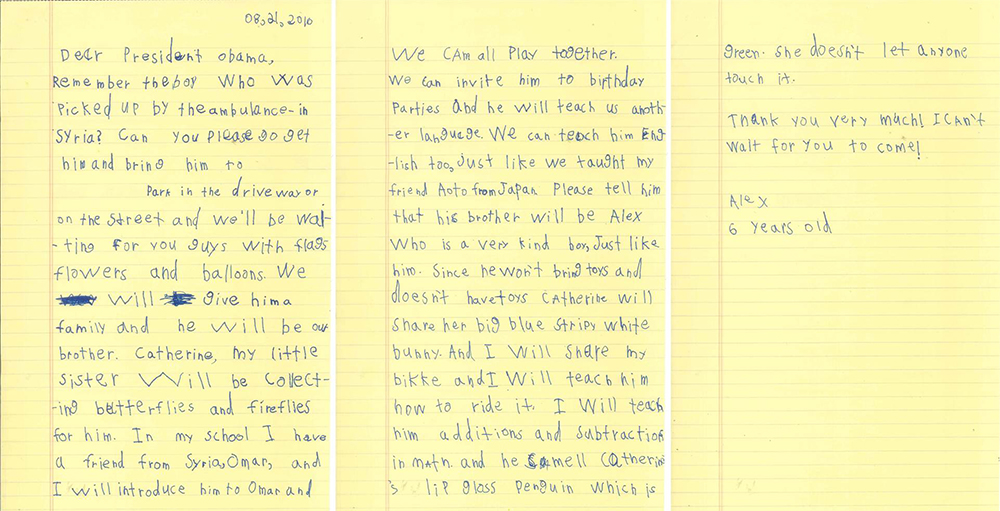 08,21,2010
Dear President obama,
Remember the boy Who Was
Picked up by the ambulance-in
Syria? Can you please go get
him and bring him to
Park in the driveway or
on the street and we'll be wai-
-ting for you guys with flags
flowers and balloons. We
will give him a
family and he will be our
brother. Catherine, my little
sister Will be Collect-
-ing butterflies and fireflies
for him. In my school I have
a friend from Syria, Omar, and
I will introduce him to Omar and
We CAm all Play together.
We can invite him to birthday
Parties And he will teach us anoth-
-er language. We can teach him Eng
-lish too, Just like we taught my
friend Aoto from Japan Please tell him
that his brother will be Alex
Who is a very kind boy, Just like
him. Since he won't bring toys and
doesn't have toys Catherine will
share her big blue stripy white
bunny. And I Will share my
bikke and I Will teach him
how to ride it. I Will teach
him additions and subtraction
in math. and he smell Catherine
's lip gloss Penguin which is
green. She doesn't let anyone
touch it.
Thank you very much! I Can't
wait for you to come!
Alex
6 years old